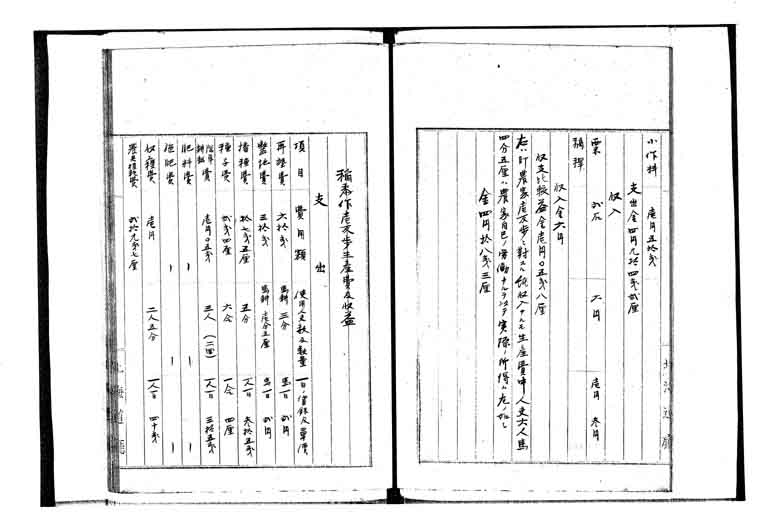 小作料 壱円五拾銭
支出金四円九拾四銭弐厘
収入
粟 弐石 六円 壱円 参円
稿稈
収入金六円
収支比較益金壱円〇五銭八厘
右ハ則農家壱反歩ニ対スル純収入ナルモ生産費中人夫六人馬
四分五厘ハ農家自己ノ労働ナルヲ以テ実際ノ所得ハ左ノ如シ
金四円拾八銭三厘
北海道庁
稲黍作壱反歩生産費及収益
支出
項目 費用額 使用人夫数及数量 一日ノ賃銭及単価
再墾費 六拾銭 馬耕三分 馬一日 弐円
整地費 三拾銭 馬耕壱分五厘 馬一日 弐円
播種費 拾七銭五厘 五分 一人一日 参拾五銭
種子費 弐銭四厘 六合 一合 四厘
除草耕耘費 壱円〇五銭 三人(二回) 一人一日 三拾五銭
肥料費 ー ー ー
施肥費 ー ー ー
収穫費 壱円 二人五分 一人一日 四十銭
弐拾九銭七厘
北海道庁